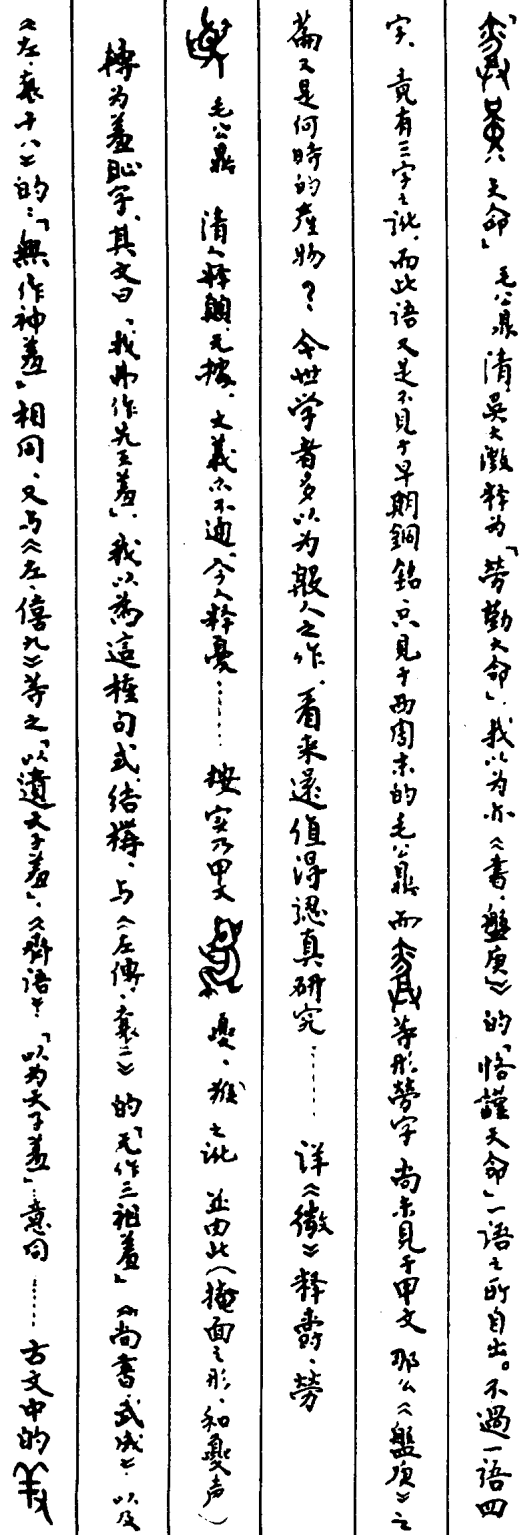 天命」 毛公鼎 清 吳大澂釋为「勞勤大命」，我以为亦《書·盤庚》的「恪謹天命」一語之所自出。不過一語四
字，竟有三字之訛，而此語又是不見于早期銅銘，只見于西周末的毛公鼎 而 等形勞字 尚未見于甲文 那么《盤庚》之
篇又是何時的產物？ 今世学者多以为殷人之作，看来還值得認真研究…… 詳《徵》釋 、勞
毛公鼎 清人釋 无據，文義亦不通，今人釋憂…… 按实乃甲文 夒、猴之訛 並由此（掩面之形，和夒声）
轉为羞恥字，其文曰，「我弗作先王羞」，我以為這種句式結構，与《左傳·哀二》的「无作三祖羞」《尚書·武成》以及
《左·襄十八》的：「無作神羞」相同，又与《左·僖九》等之「以遺天子羞」，《齊語》：「以为天子羞」…意同…… 古文中的